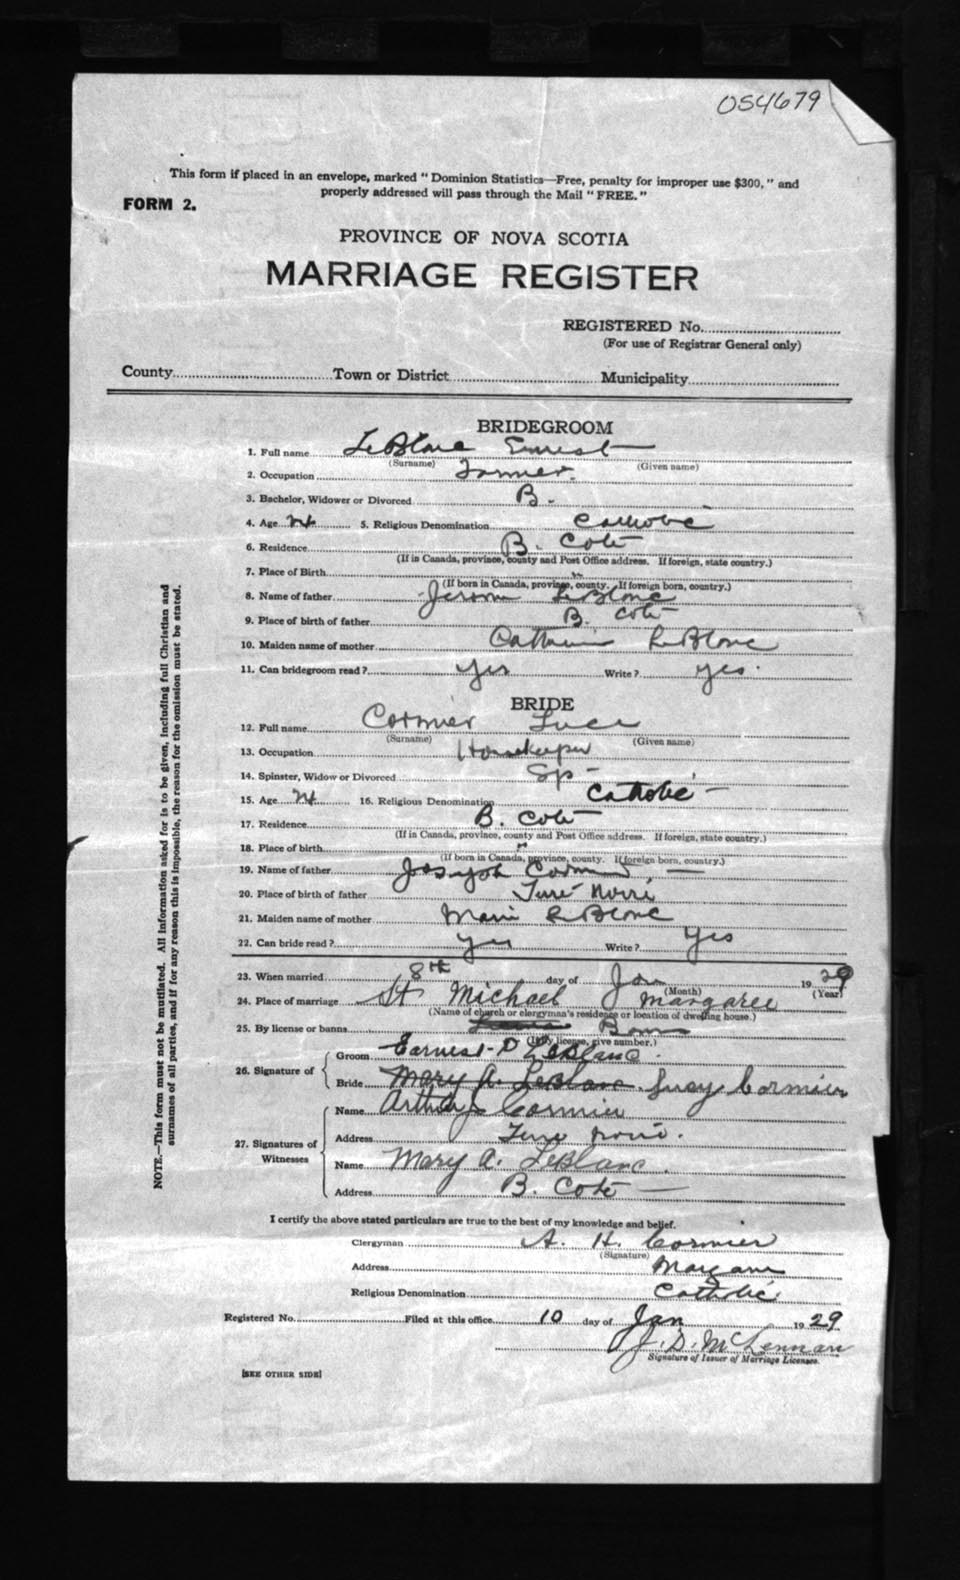 054679
This form if placed in an envelope, marked "Dominion Statistics—Free, penalty for improper use $300," and
properly addressed will pass through the Mail "FREE."
FORM 2.
PROVINCE OF NOVA SCOTIA
MARRIAGE REGISTER
REGISTERED No.
(For use of Registrar General only)
County Town or District Municipality
BRIDEGROOM
1. Full name LeBlanc Ernest
(Surname) (Given name)
2. Occupation Farmer.
3. Bachelor, Widower or Divorced B.
4. Age 5. Religious Denomination Catholic
6. Residence B. Cote
(If in Canada, province, county and Post Office address. If foreign, state country.)
7. Place of Birth "
(If born in Canada, province, county. If foreign born, country.)
8. Name of father Jerome LeBlanc
9. Place of birth of father B. Cote
10. Maiden name of mother LeBlanc
11. Can bridegroom read? Yes Write? Yes.
BRIDE
12. Full name Cormier Luce
(Surname) (Given name)
13. Occupation Housekeeper
14. Spinster, Widow or Divorced Sp -
15. Age 16. Religious Denomination Catholic -
17. Residence B. Cote
(If in Canada, province, county and Post Office address. If foreign, state country.)
18. Place of birth "
(If born in Canada, province, county. If foreign born, country.)
19. Name of father Joseph Cormier
20. Place of birth of father Terre Noire
21. Maiden name of mother Marie LeBlanc
22. Can bride read? Yes Write? Yes
23. When married 8th day of Jan 1929
(Month) (Year)
24. Place of marriage St Michael Margaree
(Name of church or clergyman's residence or location of dwelling house.)
25. By license or banns Bans
(If by license, give number.)
26. Signature of
Groom Earnest D LeBlanc.
Bride Mary A. LeBlanc. Lucy Cormier
27. Signatures of Witnesses
Name Arthur J Cormier
Address Terre noire.
Name Mary A. LeBlanc.
Address B. Cote
I certify the above stated particulars are true to the best of my knowledge and belief.
Clergyman A. H. Cormier
(Signature)
Address Margaree
Religious Denomination Catholic
Registered No. Filed at this office 10 day of Jan 1929
J. D. McLennan
Signature of Issuer of Marriage Licenses.
[SEE OTHER SIDE]
NOTE.—This form must not be mutilated. All information asked for is to be given, including full Christian and
surnames of all parties, and if for any reason this is impossible, the reason for the omission must be stated.